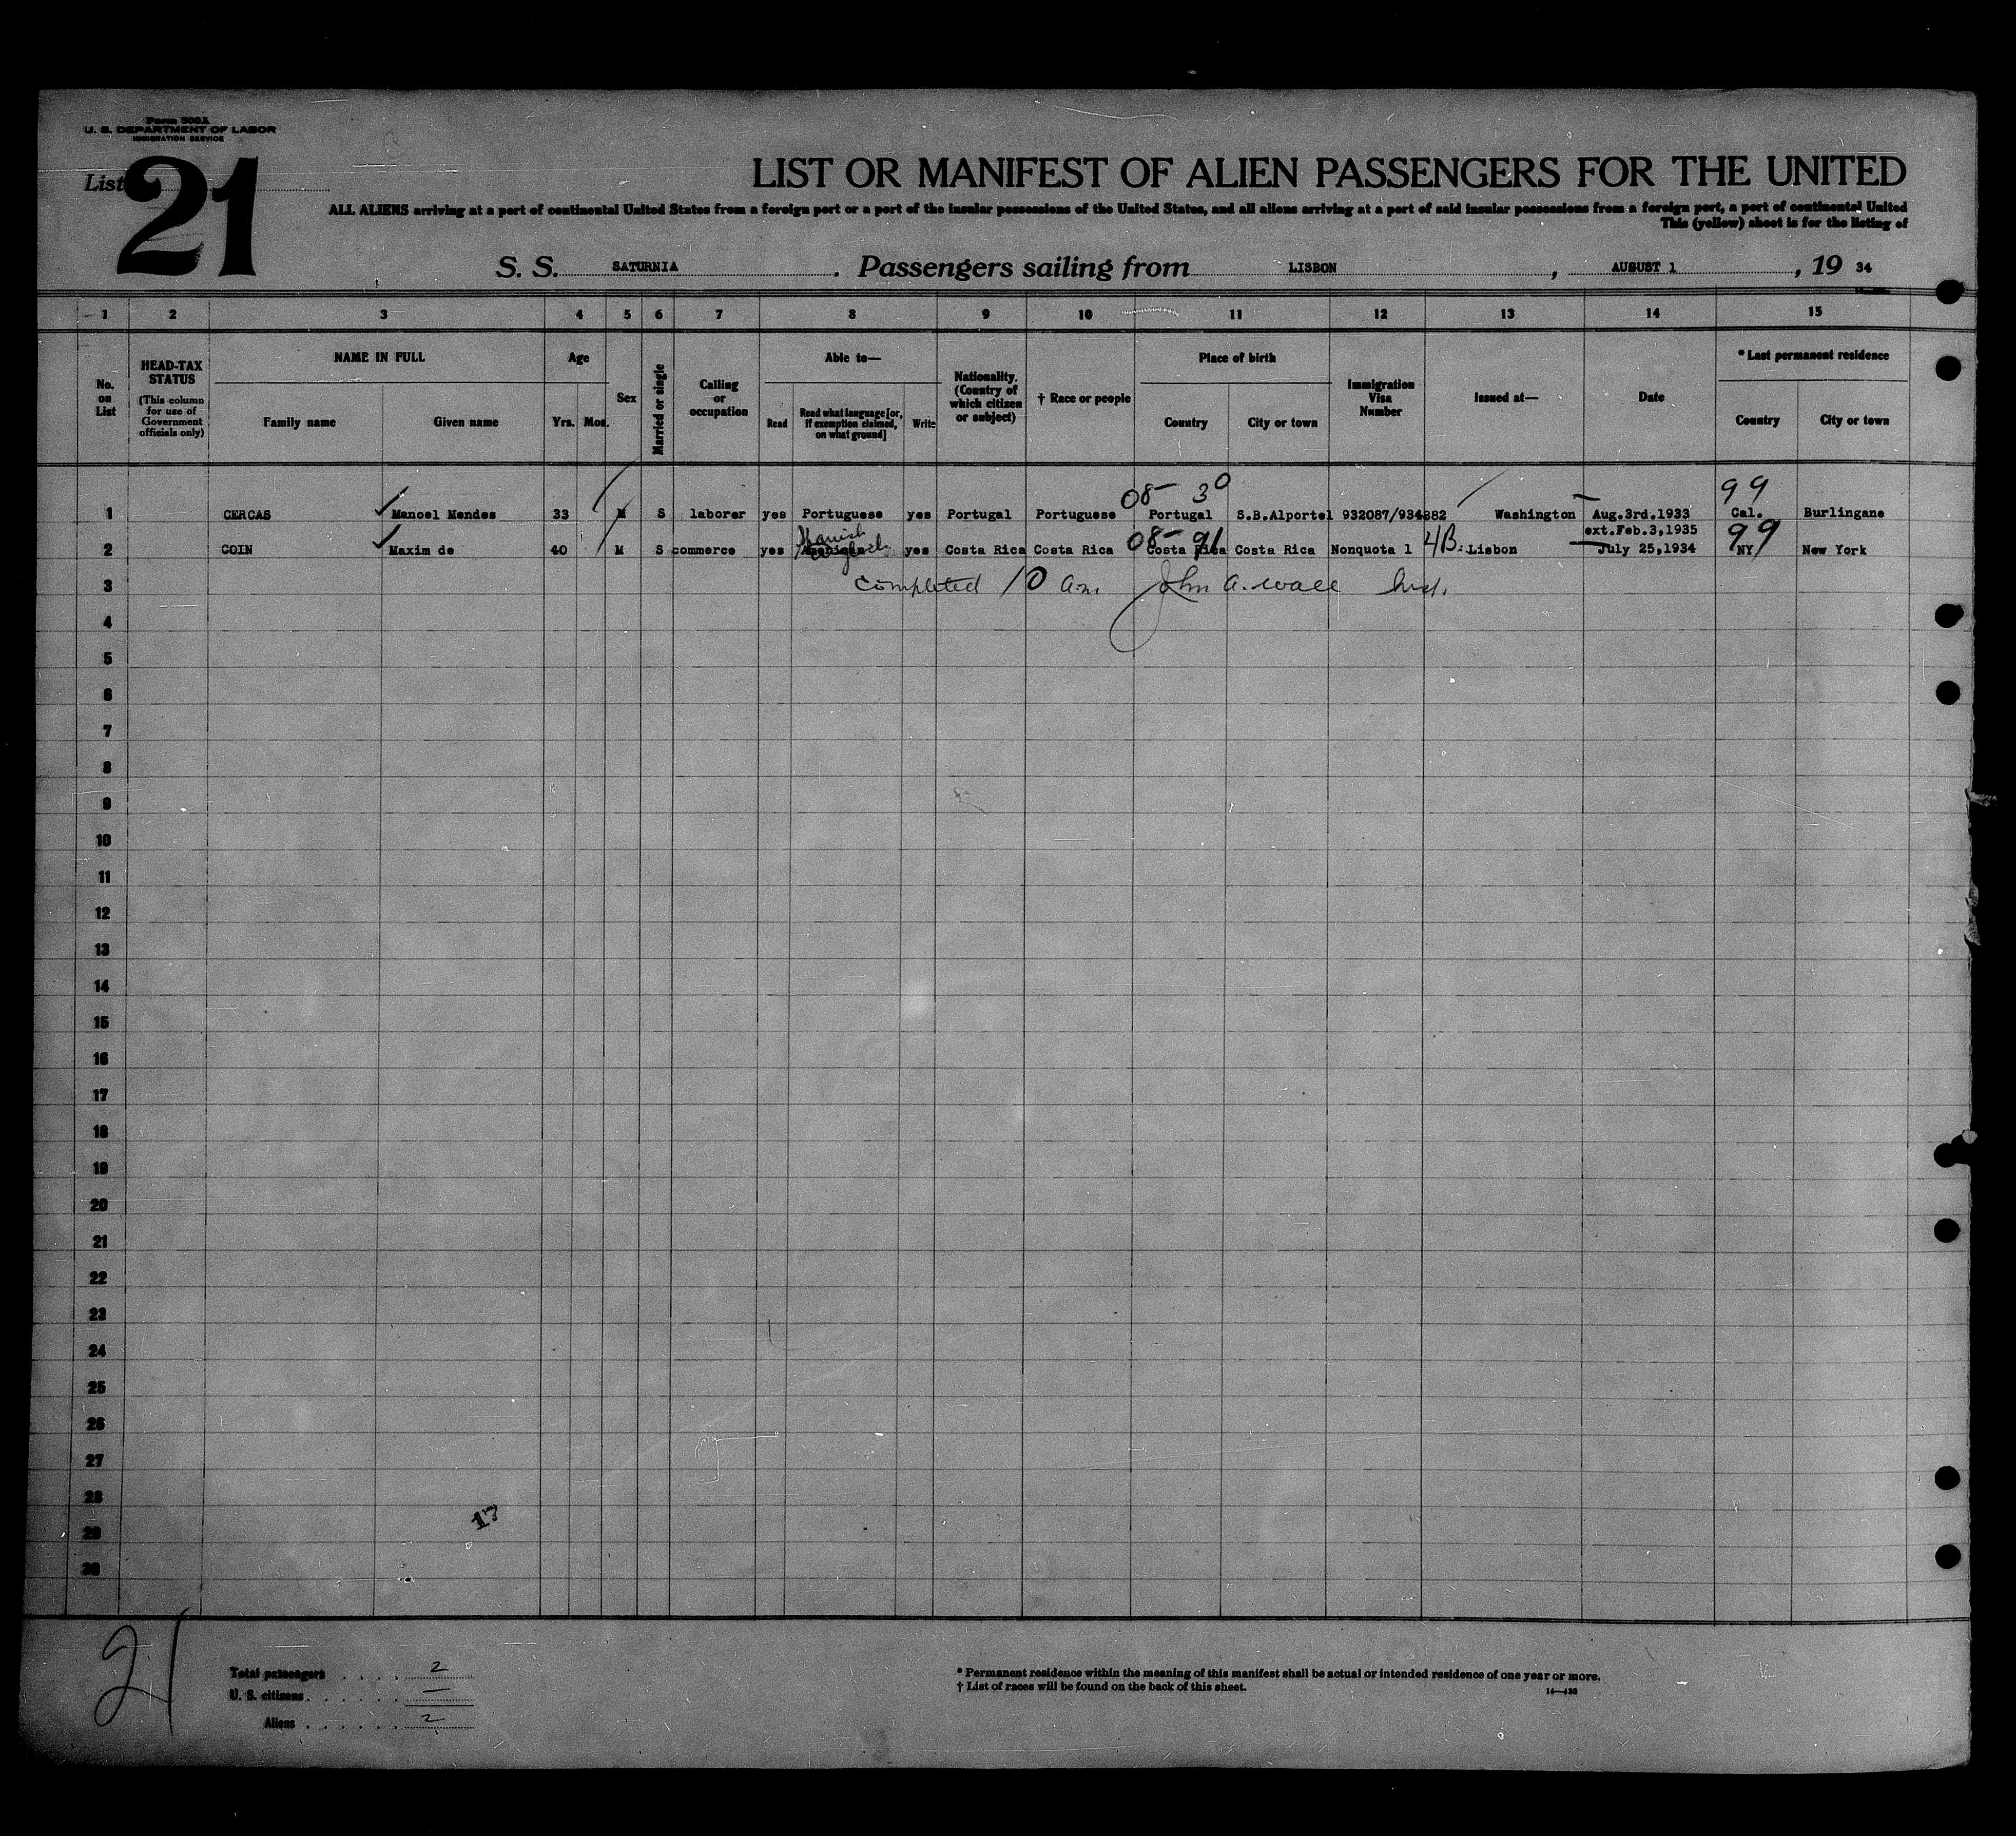 Form 500A
U. S. DEPARTMENT OF LABOR
IMMIGRATION SERVICE
List 21
LIST OR MANIFEST OF ALIEN PASSENGERS FOR THE UNITED
ALL ALIENS arriving at a port of continental United States from a foreign port or a port of the insular possessions of the United States, and all aliens arriving at a port of said insular possessions from a foreign port, a port of continental United
This (yellow) sheet is for the listing of
S. S. SATURNIA . Passengers sailing from LISBON , AUGUST 1 , 19 34
1 2 3 4 5 6 7 8 9 10 11 12 13 14 15
No. on List
HEAD-TAX STATUS (This column for use of Government officials only)
NAME IN FULL
Family name Given name
Age
Yrs. Mos.
Sex
Married or single
Calling or occupation
Able to—
Read Read what language [or, if exemption claimed, on what ground] Write
Nationality. (Country of which citizen or subject)
† Race or people
Place of birth
Country City or town
Immigration Visa Number
Issued at—
Date
* Last permanent residence
Country City or town
08- 30 99
1 CERCAS Manoel Mendes 33 M S laborer yes Portuguese yes Portugal Portuguese Portugal S.B.Alportel 932087/934882 Washington Aug.3rd.1933 Cal. Burlingane
ext.Feb.3,1935
2 COIN Maxim de 40 M S commerce yes yes Costa Rica Costa Rica 08- 91 Costa Rica Costa Rica Nonquota 1 4B. Lisbon July 25,1934 99 NY New York
3 completed 10 a.m. John A. Wall Insp.
4
5
6
7
8
9
10
11
12
13
14
15
16
17
18
19
20
21
22
23
24
25
26
27
28
29
30
17
21
Total passengers . . . . 2
U. S. citizens . . . . . . —
Aliens . . . . . . 2
* Permanent residence within the meaning of this manifest shall be actual or intended residence of one year or more.
† List of races will be found on the back of this sheet.
14—430